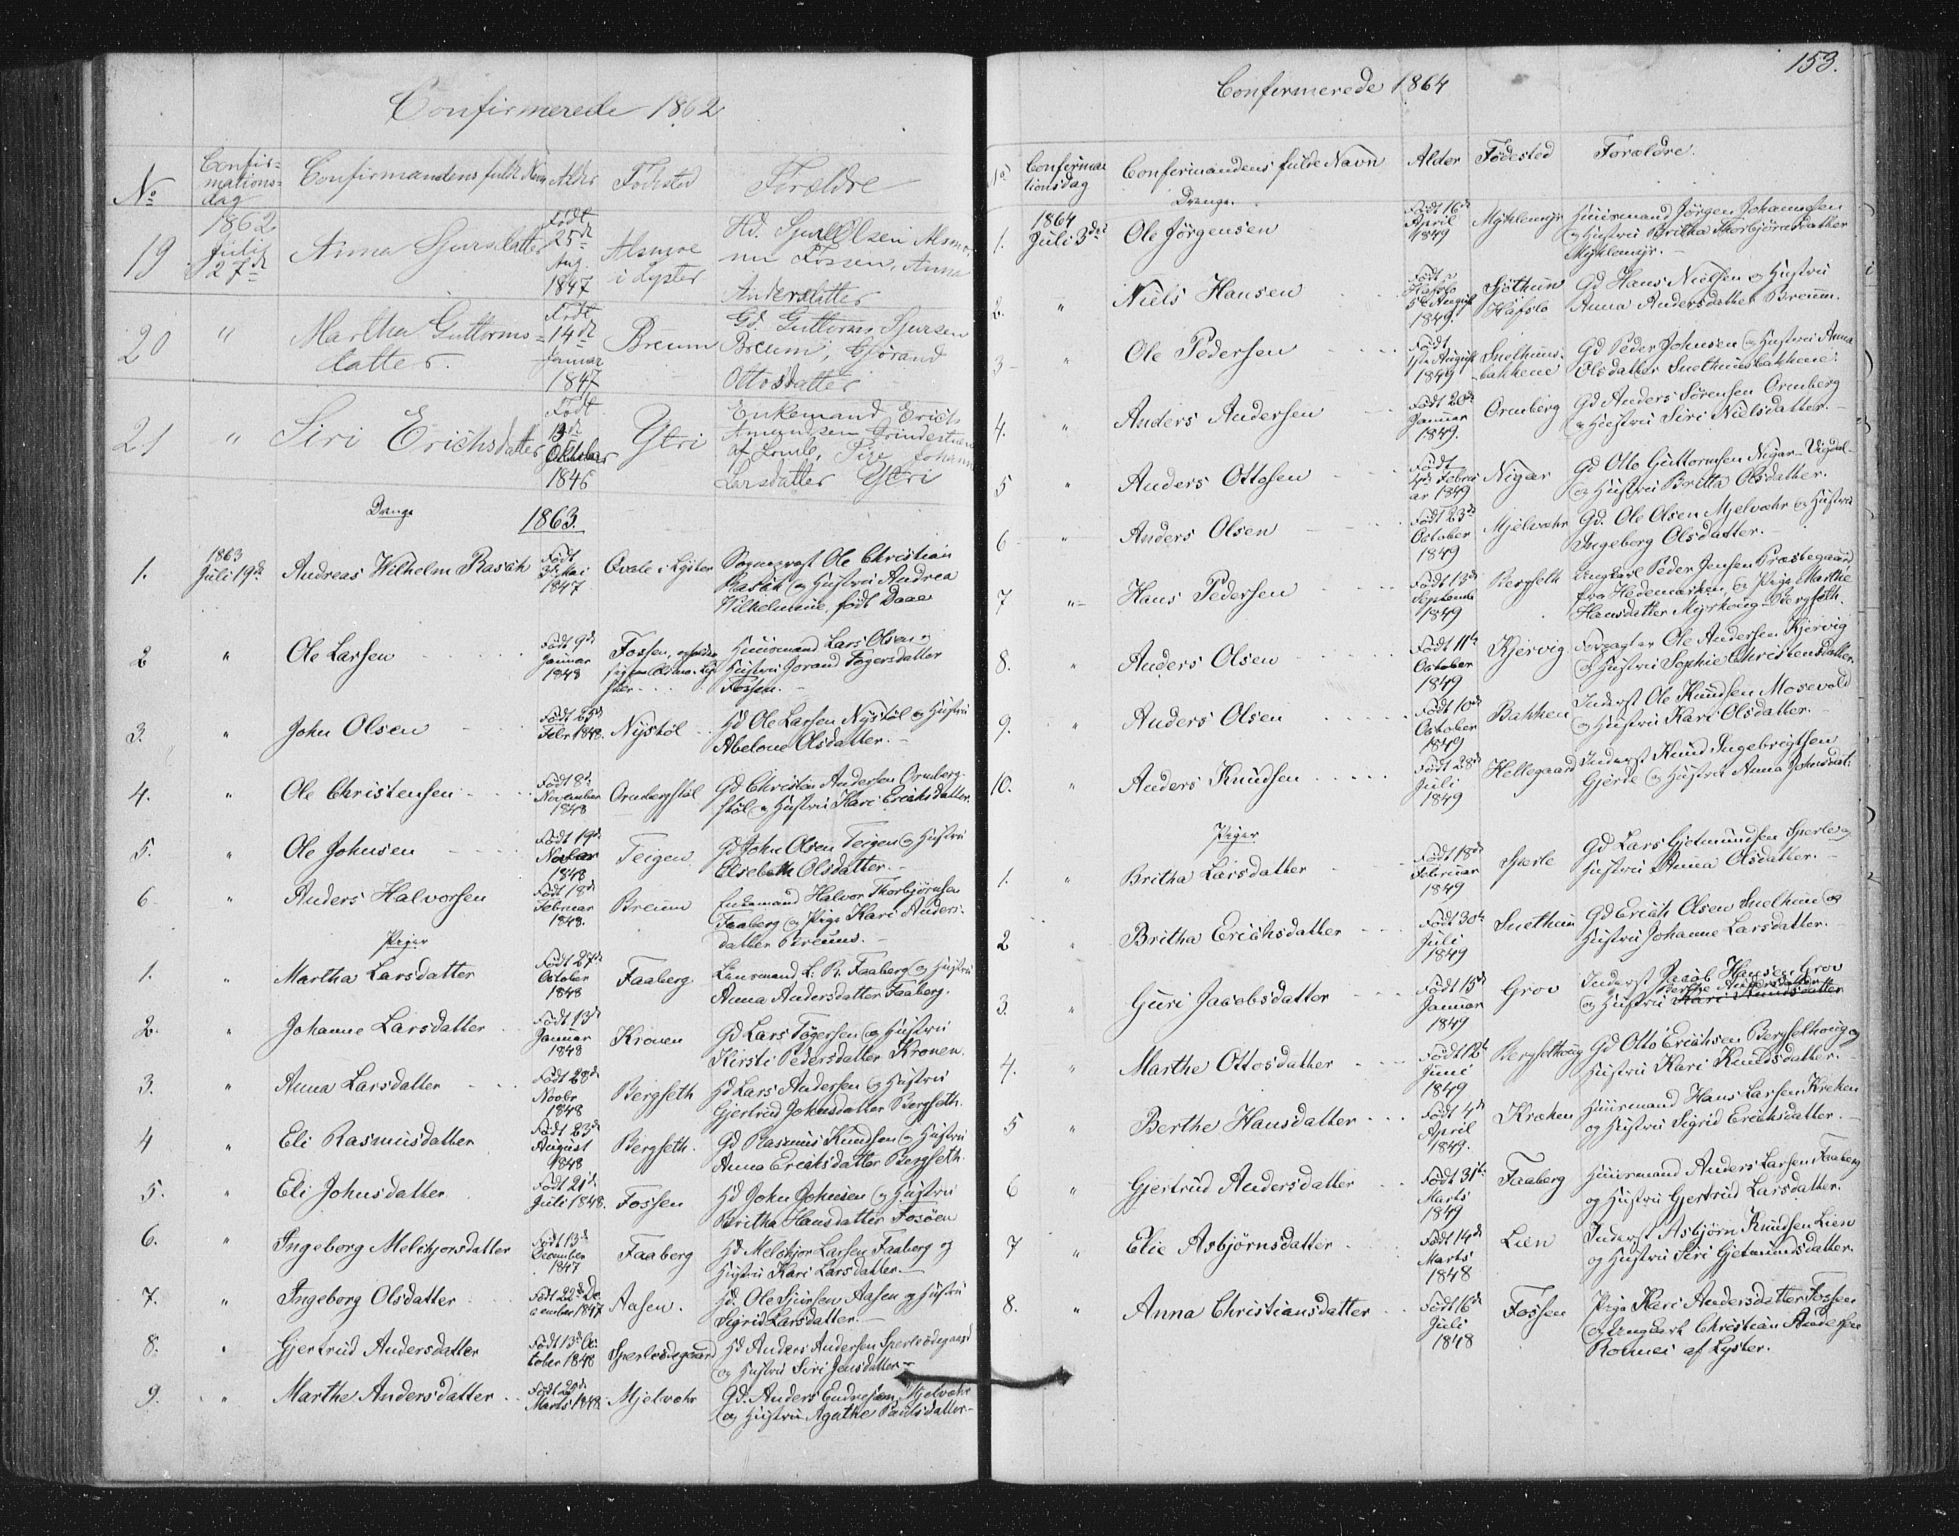 Confirmerede 1862
No
Confir-
mations-
dag
Confirmandens fulde Navn
Alder
Fødested
Forældre
19
1862
Julii
27de
Anna Sjursdatter
Født
25de
Aug.
1847
Alsmoe
i Lyster
Hd. Sjur Olsen
Fossen, Anna
Andersdatter
20
"
Martha Guttorms-
datter.
Født
14de
Januar
1847
Breum
Gd. Guttorm Sjursen
Breum, Gjørand
Ottosdatter
21
"
Siri Erichsdatter
Født
Oktober
1846
Ytri
Enkemand Erich
Amundsen
af Lomb, Pige Johanne
Larsdatter Ytri
Drenge
1863.
1.
1863
Juli 19de
Andreas Wilhelm Rasch
Født
Mai
1847
Qvale i Lyster
Sogneprest Ole Christian
Rasch og Hustru Andrea
Wilhelmine, født Daae
2
"
Ole Larsen
Født 9de
Januar
1848
Fossen,
Huusmand Lars Olsen og
Hustru Jorand Togersdatter
Fossen.
3.
"
John Olsen
Født 25de
Febr 1848.
Nystöl
Hd Ole Larsen Nystöl og Hustru
Abelone Olsdatter.
4.
"
Ole Christensen
Født 8de
November
1848
Ormbergstöl
Gd Christen Andersen Ormberg-
stöl og Hustru Kari Erichsdatter.
5.
"
Ole Johnsen
Født 19de
1848
Teigen
Gd John Olsen Teigen og Hustru
Elsebeth Olsdatter.
6
"
Anders Halvorsen
Født 18de
Februar
1848.
Breum
Enkemand Halvor Thorbjørnsen
Faaberg og Pige Kari Anders-
datter Breum.
Piger
1.
"
Martha Larsdatter
Født 27de
October
1848
Faaberg
Lensmand L. R. Faaberg og Hustru
Anna Andersdatter Faaberg.
2.
"
Johanne Larsdatter
Født 13de
Januar
1848
Kronen
Gd Lars Togersen og Hustru
Kirsti Pedersdatter Kronen.
3.
"
Anna Larsdatter
Født 28de
Novbr
1848
Bergseth
Hd Lars Andersen og Hustru
Gjertrud Johnsdatter Bergseth.
4
"
Eli Rasmusdatter
Født 23de
August
1848
Bergseth.
Gd Rasmus Knudsen og Hustru
Anna Erichsdatter Bergseth.
5.
"
Eli Johnsdatter
Født 21de
Juli 1848.
Fossen
Hd John Johnsen og Hustru
Britha Hansdatter Fosöen
6.
"
Ingeborg Melchjorsdatter
Født 13de
December
1847
Faaberg
Hd Melchjor Larsen Faaberg og
Hustru Kari Larsdatter.
7.
"
Ingeborg Olsdatter
Født 22de De-
cember 1847
Aasen.
Hd. Ole Sjursen Aasen og Hustru
Sigrid Larsdatter.
8.
"
Gjertrud Andersdatter
Født 13de Oc-
tober 1848
Sperleödegaard
Hd Anders Andersen Sperleödegaard
og Hustru Siri Jensdatter
9.
"
Marthe Andersdatter
Født 20de
Marts 1848.
Mjelvæhr
Gd. Anders Endresen Mjelvæhr
og Hustru Agathe Paulsdatter
153.
Confirmerede 1864
No
Confirma-
tionsdag
Confirmandens fulde Navn
Alder
Fødested
Forældre.
Drenge.
1.
1864
Juli 3de
Ole Jörgensen
Født 16de
April
1849
Myklemyr
Huusmand Jörgen Johannesen
og Hustru Britha Thorbjörnsdatter
Myklemyr.
2.
"
Niels Hansen
Født i
Hafslo
5te August
1849.
Sjöthun
Hafslo
Gd Hans Nielsen og Hustru
Anna Andersdatter Breum.
3
"
Ole Pedersen
Født
1ste August
1849
Snethuns-
bakkene
Gd Peder Johnsen og Hustru Anna
Olsdatter Snethunsbakkene.
4.
"
Anders Andersen
Født 20de
Januar
1849.
Ormberg
Gd Anders Sörensen Ormberg
og Hustru Siri Nielsdatter.
5
"
Anders Ottosen
Født
4de Febru-
ar 1849
Nigar
Gd Otto Guttormsen Nigar-Vigdal-
og Hustru Britta Olsdatter.
6
"
Anders Olsen
Født 23de
October
1849
Mjelvæhr
Gd. Ole Olsen Mjelvæhr og Hustru
Ingeborg Olsdatter.
7
"
Hans Pedersen
Født 13de
September
1849
Bergseth
Ungkarl Peder Jensen Præstegaard
fra Hedemarken, og Pige Marthe
Hansdatter Myrhoug-Bergseth.
8.
"
Anders Olsen
Født 11te
October
1849
Kjervig
Forpagter Ole Andersen Kjervig
og Hustru Sophie Christensdatter.
9.
"
Anders Olsen
Født 10de
October
1849
Bakken
Inderst Ole Knudsen Mosevold
og Hustru Kari Olsdatter.
10.
"
Anders Knudsen
Født 28de
Juli
1849
Hellegaard
Inderst Knud Ingebrigtsen
Gjerde og Hustru Anna Johnsdat:
Piger
1.
"
Britha Larsdatter
Født 18de
Februar
1849
Sperle
Gd Lars Gjetmundsen Sperle og
Hustru Anna Olsdatter.
2
"
Britha Erichsdatter
Født 30te
Juli
1849
Snethun
Gd Erich Olsen Snethun og
Hustru Johanne Larsdatter.
3.
"
Guri Jacobsdatter
Født 15de
Januar
1849
Grov
Inderst Jacob Hansen Grov
Berthe Andersdatter
og Hustru Kari Knudsdatter
4.
"
Marthe Ottosdatter
Født 12te
Juni
1849
Bergsethoug
Gd Otto Erichsen Bergsethoug og
Hustru Kari Knudsdatter.
5
"
Berthe Hansdatter
Født 4de
April
1849.
Kreken
Huusmand Hans Larsen Kreken
og Hustru Sigrid Erichsdatter.
6
"
Gjertrud Andersdatter
Født 31te
Marts
1849
Faaberg
Huusmand Anders Larsen Faaberg
og Hustru Gjertrud Larsdatter.
7
"
Elie Asbjørnsdatter
Født 14de
Marts
1848
Lien
Inderst Asbjørn Knudsen Lien
og Hustru Siri Gjetmundsdatter.
8.
"
Anna Christiansdatter
Født 16de
Juli
1848
Fossen
Pige Kari Andersdatter Fossen
og Ungkarl Christian Andersen
Ronnei af Lyster.